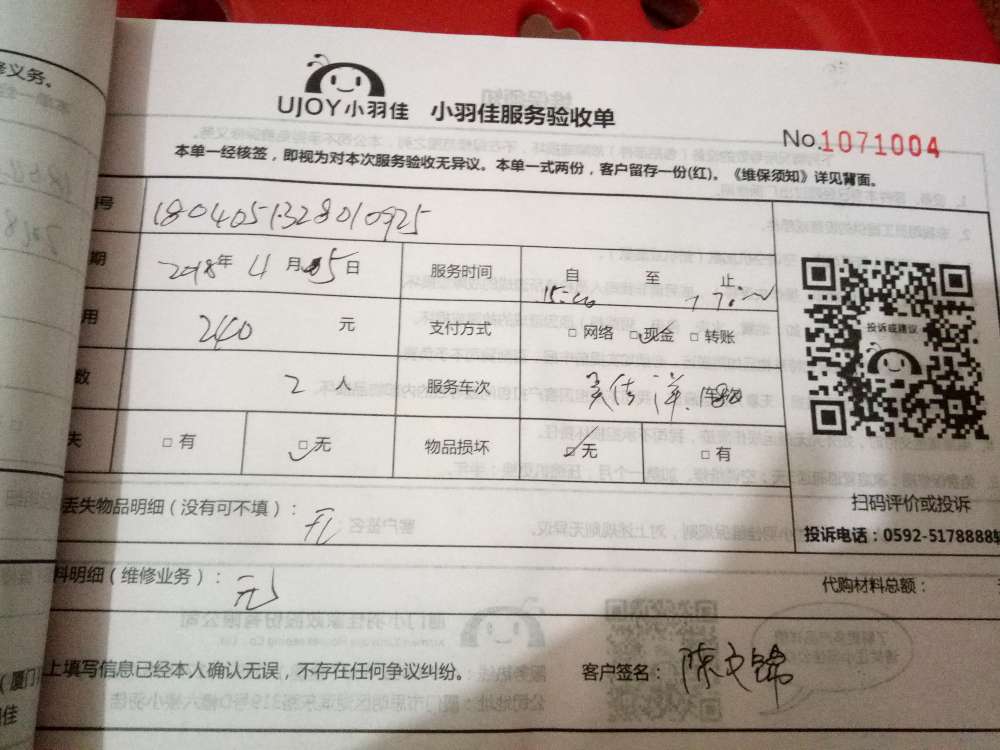 修义务。
UJOY小羽佳 小羽佳服务验收单
No.1071004
本单一经核签，即视为对本次服务验收无异议。本单一式两份，客户留存一份(红)。《维保须知》详见背面。
号 1804051328010925
期 2018年4月5日 服务时间 自 15:00 至 止
用 240 元 支付方式 □ 网络 □ 现金 □ 转账
数 2人 服务车次
投诉或建议
失 □ 有 □ 无 物品损坏 □ 无 □ 有
扫码评价或投诉
丢失物品明细（没有可不填）： 无
投诉电话：0592-5178888转
料明细（维修业务）： 无 代购材料总额：
上填写信息已经本人确认无误，不存在任何争议纠纷。 客户签名： 陈文锦
（厦门
佳